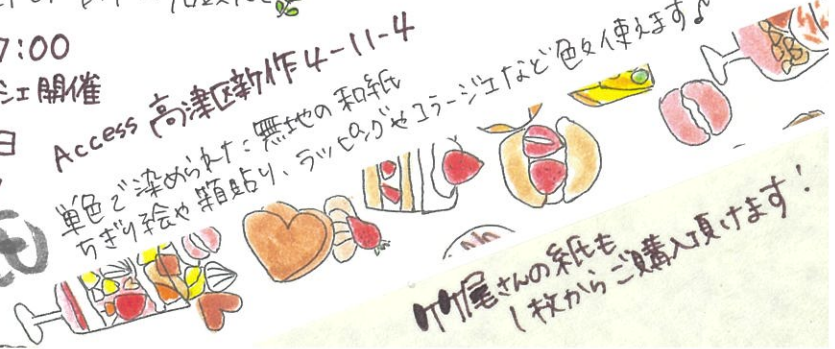 7:00
シェ開催
日
Access 高津区新作4-11-4
単色で染められた無地の和紙
ちぎり絵や箱貼り、ラッピングやコラージュなど色々使えます♪
竹尾さんの紙も
1枚からご購入頂けます!